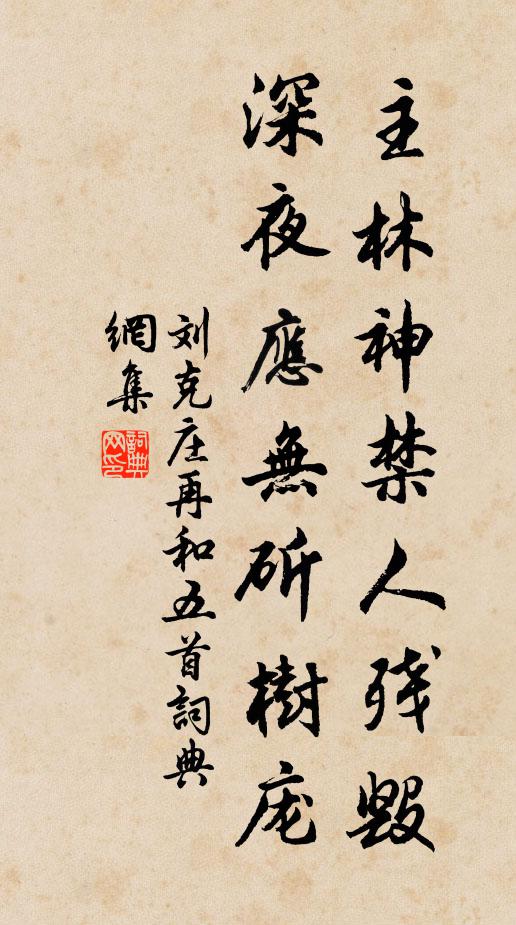 主林神禁人残毀
深夜應無斫樹庑
刘克庄再和五首詞典
網集
詞典
网印